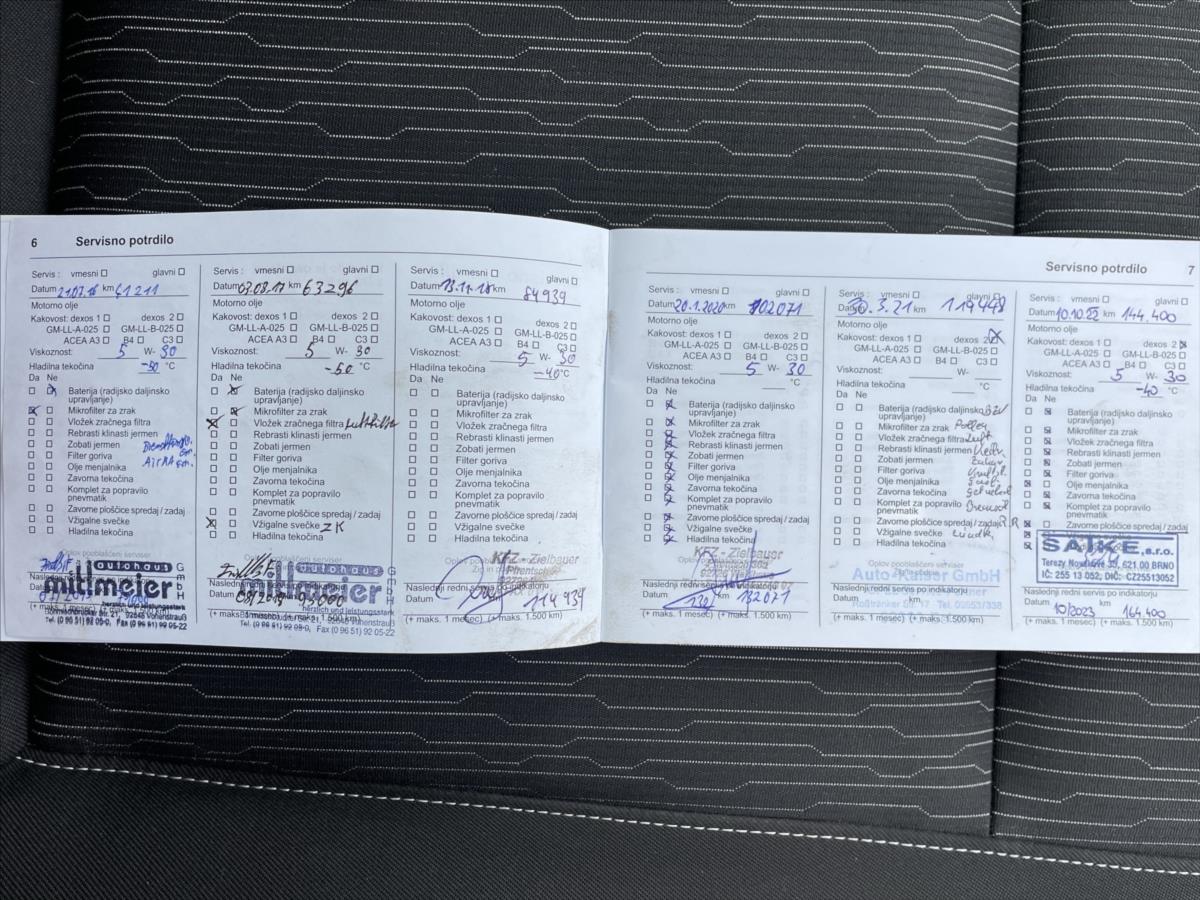 6 Servisno potrdilo
Servis : vmesni glavni
Datum 21.07.16 km 61211
Motorno olje
Kakovost: dexos 1 dexos 2
GM-LL-A-025 GM-LL-B-025
ACEA A3 B4 C3
Viskoznost: 5 W- 30
Hladilna tekočina -50 °C
Da Ne
Baterija (radijsko daljinsko
upravljanje)
Mikrofilter za zrak
Vložek zračnega filtra
Rebrasti klinasti jermen
Zobati jermen
Filter goriva
Olje menjalnika
Zavorna tekočina
Komplet za popravilo
pnevmatik
Zavorne ploščice spredaj / zadaj
Vžigalne svečke
Hladilna tekočina
Oplov pooblaščeni serviser
autohaus
mitlmeier
GmbH
Datum
(+ maks. 1 mesec) (+ maks. 1.500 km)
Tel. (0 96 51) 92 05-0, Fax (0 96 51) 92 05-22
Servis : vmesni glavni
Datum 03.08.17 km 63296
Motorno olje
Kakovost: dexos 1 dexos 2
GM-LL-A-025 GM-LL-B-025
ACEA A3 B4 C3
Viskoznost: 5 W- 30
Hladilna tekočina -50 °C
Da Ne
Baterija (radijsko daljinsko
upravljanje)
Mikrofilter za zrak
Vložek zračnega filtra Luftfilter
Rebrasti klinasti jermen
Zobati jermen
Filter goriva
Olje menjalnika
Zavorna tekočina
Komplet za popravilo
pnevmatik
Zavorne ploščice spredaj / zadaj
Vžigalne svečke ZK
Hladilna tekočina
Oplov pooblaščeni serviser
autohaus
GmbH
Datum
herzlich und leistungsstark
92648 Vohenstrauß
Tel. (0 96 51) 92 05-0, Fax (0 96 51) 92 05-22
Servis : vmesni glavni
Datum 13.11.18 km 84939
Motorno olje
Kakovost: dexos 1 dexos 2
GM-LL-A-025 GM-LL-B-025
ACEA A3 B4 C3
Viskoznost: 5 W- 30
Hladilna tekočina -40 °C
Da Ne
Baterija (radijsko daljinsko
upravljanje)
Mikrofilter za zrak
Vložek zračnega filtra
Rebrasti klinasti jermen
Zobati jermen
Filter goriva
Olje menjalnika
Zavorna tekočina
Komplet za popravilo
pnevmatik
Zavorne ploščice spredaj / zadaj
Vžigalne svečke
Hladilna tekočina
KFZ - Zielbauer
Datum 114 939
(+ maks. 1 mesec) (+ maks. 1.500 km)
Servisno potrdilo 7
Servis : vmesni glavni
Datum 20.1.2020 km 102071
Motorno olje
Kakovost: dexos 1 dexos 2
GM-LL-A-025 GM-LL-B-025
ACEA A3 B4 C3
Viskoznost: 5 W- 30
Hladilna tekočina °C
Da Ne
Baterija (radijsko daljinsko
upravljanje)
Mikrofilter za zrak
Vložek zračnega filtra
Rebrasti klinasti jermen
Zobati jermen
Filter goriva
Olje menjalnika
Zavorna tekočina
Komplet za popravilo
pnevmatik
Zavorne ploščice spredaj / zadaj
Vžigalne svečke
Hladilna tekočina
KFZ - Zielbauer
Datum km 132071
(+ maks. 1 mesec) (+ maks. 1.500 km)
Servis : vmesni glavni
Datum 30.3.21 km 119448
Motorno olje
Kakovost: dexos 1 dexos 2
GM-LL-A-025 GM-LL-B-025
ACEA A3 B4 C3
Viskoznost: W-
Hladilna tekočina °C
Da Ne
Baterija (radijsko daljinsko
upravljanje)
Mikrofilter za zrak Pollen
Vložek zračnega filtra Luft
Rebrasti klinasti jermen
Zobati jermen
Filter goriva
Olje menjalnika
Zavorna tekočina
Komplet za popravilo
pnevmatik
Zavorne ploščice spredaj / zadaj
Vžigalne svečke
Hladilna tekočina
Oplov pooblaščeni serviser
GmbH
Naslednji redni servis po indikatorju
Datum km
(+ maks. 1 mesec) (+ maks. 1.500 km)
Servis : vmesni glavni
Datum 10.10.22 km 144.400
Motorno olje
Kakovost: dexos 1 dexos 2
GM-LL-A-025 GM-LL-B-025
ACEA A3 B4 C3
Viskoznost: 5 W- 30
Hladilna tekočina -40 °C
Da Ne
Baterija (radijsko daljinsko
upravljanje)
Mikrofilter za zrak
Vložek zračnega filtra
Rebrasti klinasti jermen
Zobati jermen
Filter goriva
Olje menjalnika
Zavorna tekočina
Komplet za popravilo
pnevmatik
Zavorne ploščice spredaj / zadaj
SAJKE, s.r.o.
Terezy Novákové 39, 621 00 BRNO
IČ: 255 13 052, DIČ: CZ25513052
Naslednji redni servis po indikatorju
Datum 10/2023 km 164 400
(+ maks. 1 mesec) (+ maks. 1.500 km)